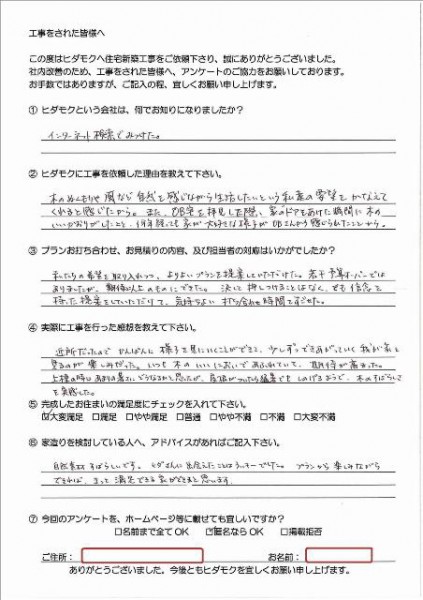 工事をされた皆様へ
この度はヒダモクへ住宅新築工事をご依頼下さり、誠にありがとうございました。
社内改善のため、工事をされた皆様へ、アンケートのご協力をお願いしております。
お手数ではありますが、ご記入の程、宜しくお願い申し上げます。
① ヒダモクという会社は、何でお知りになりましたか？
インターネット検索でみつけた。
② ヒダモクに工事を依頼した理由を教えて下さい。
木のぬくもりや風など自然を感じながら生活したいという私達の要望をかなえて
くれると感じたから。また、OB宅を拝見した際、家のドアをあけた瞬間に木の
いいかおりがしたこと、何年経っても家が大好きな様子がOBさんから感じられたことから。
③ プランお打ち合わせ、お見積りの内容、及び担当者の対応はいかがでしたか？
私たちの希望を取り入れつつ、よりよいプランを提案していただけた。若干予算オーバーでは
ありましたが、期待以上のものにできた。決して押しつけることはなく、でも信念を
持った提案をしていただけて、気持ちよい打ち合わせ時間をすごせた。
④ 実際に工事を行った感想を教えて下さい。
近所だったのでひんぱんに様子を見にいくことができて、少しずつできあがっていく我が家を
見るのが楽しみだった。いつも木のいいにおいであふれていて、期待が高まった。
上棟の時は
木のすばらしさ
を実感した。
⑤ 完成したお住まいの満足度にチェックを入れて下さい。
☑大変満足 □満足 □やや満足 □普通 □やや不満 □不満 □大変不満
⑥ 家造りを検討している人へ、アドバイスがあればご記入下さい。
自然素材すばらしいです。ヒダさんに出会えたことはラッキーでした。プランから楽しみながら
できれば、きっと満足できる家ができると思います。
⑦ 今回のアンケートを、ホームページ等に載せても宜しいですか？
□名前まで全てOK ☑匿名ならOK □掲載拒否
ご住所： お名前：
ありがとうございました。今後ともヒダモクを宜しくお願い申し上げます。